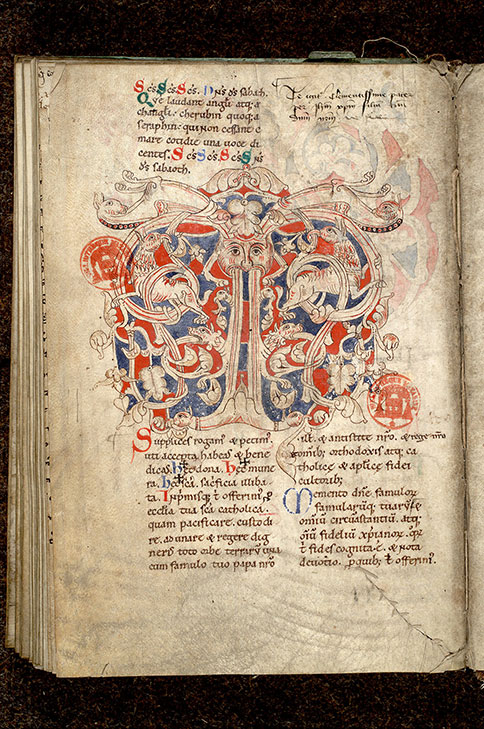 Scs. Scs. Scs. Dns ds sabaoth.
Que laudant angli atq; a
changli. cherubim quoq; a
seraphim. qui non cessant c
mare cotidie una voce di
centes. Scs Scs Scs Dns
ds sabaoth.
Te igit clementissime pater
per ihm xpm filium tuum
dnm nrm
Supplices rogam⁹ & petim⁹.
uti accepta habeas & bene
dicas. hec dona. hec mune
ra. hec sca. sacrificia illiba
ta. Inprimis que t offerim⁹. p
ecclesia tua sca catholica.
quam pacificare. custodi
re. adunare & regere dig
neris toto orbe terrarum una
cum famulo tuo papa nro
.ill. & antistite nro. & rege nro
& omnib; orthodoxis atq; ca
tholice & aplice fidei
cultorib;
Memento dne famulor
famularuq; tuaru &
omiu circustantiu. atq;
omiu fideliu xpianor. qor
t fides cognita .e. & nota
devotio. p quib; t offerim⁹.